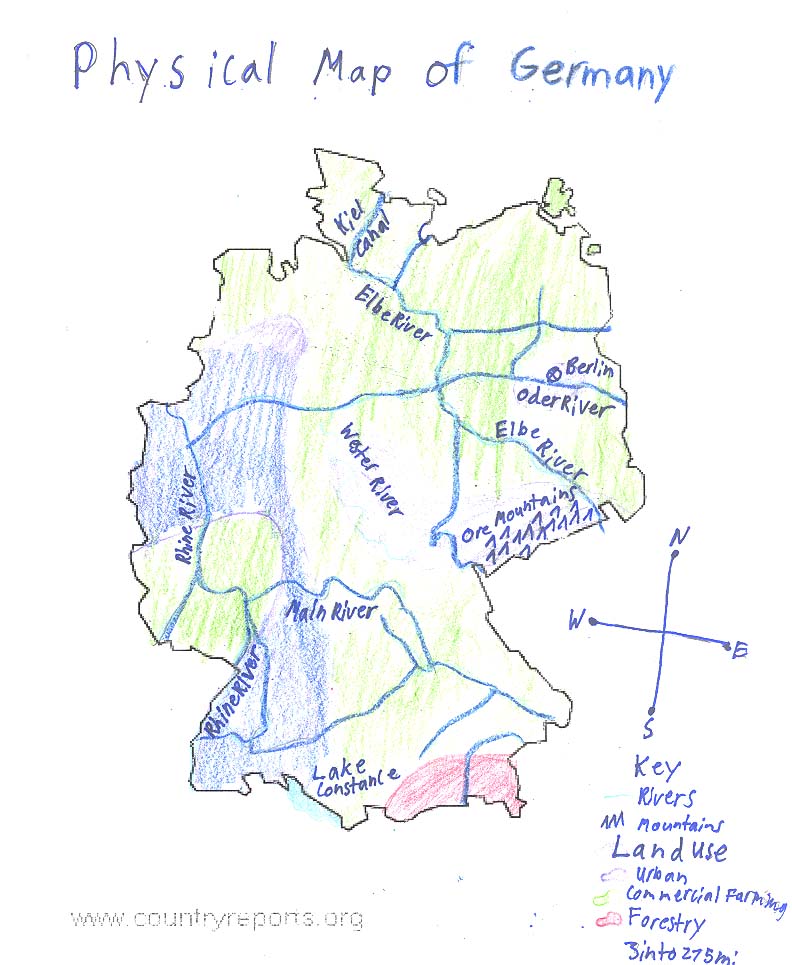 Physical Map of Germany
Kiel
Canal
Elbe River
Berlin
Oder River
Elbe
River
Wester River
Rhine River
Ore Mountains
Main River
Rhine River
Lake
Constance
N
W
E
S
Key
Rivers
Mountains
Land Use
Urban
Commercial Farming
Forestry
3 in to 275 mi
www.countryreports.org